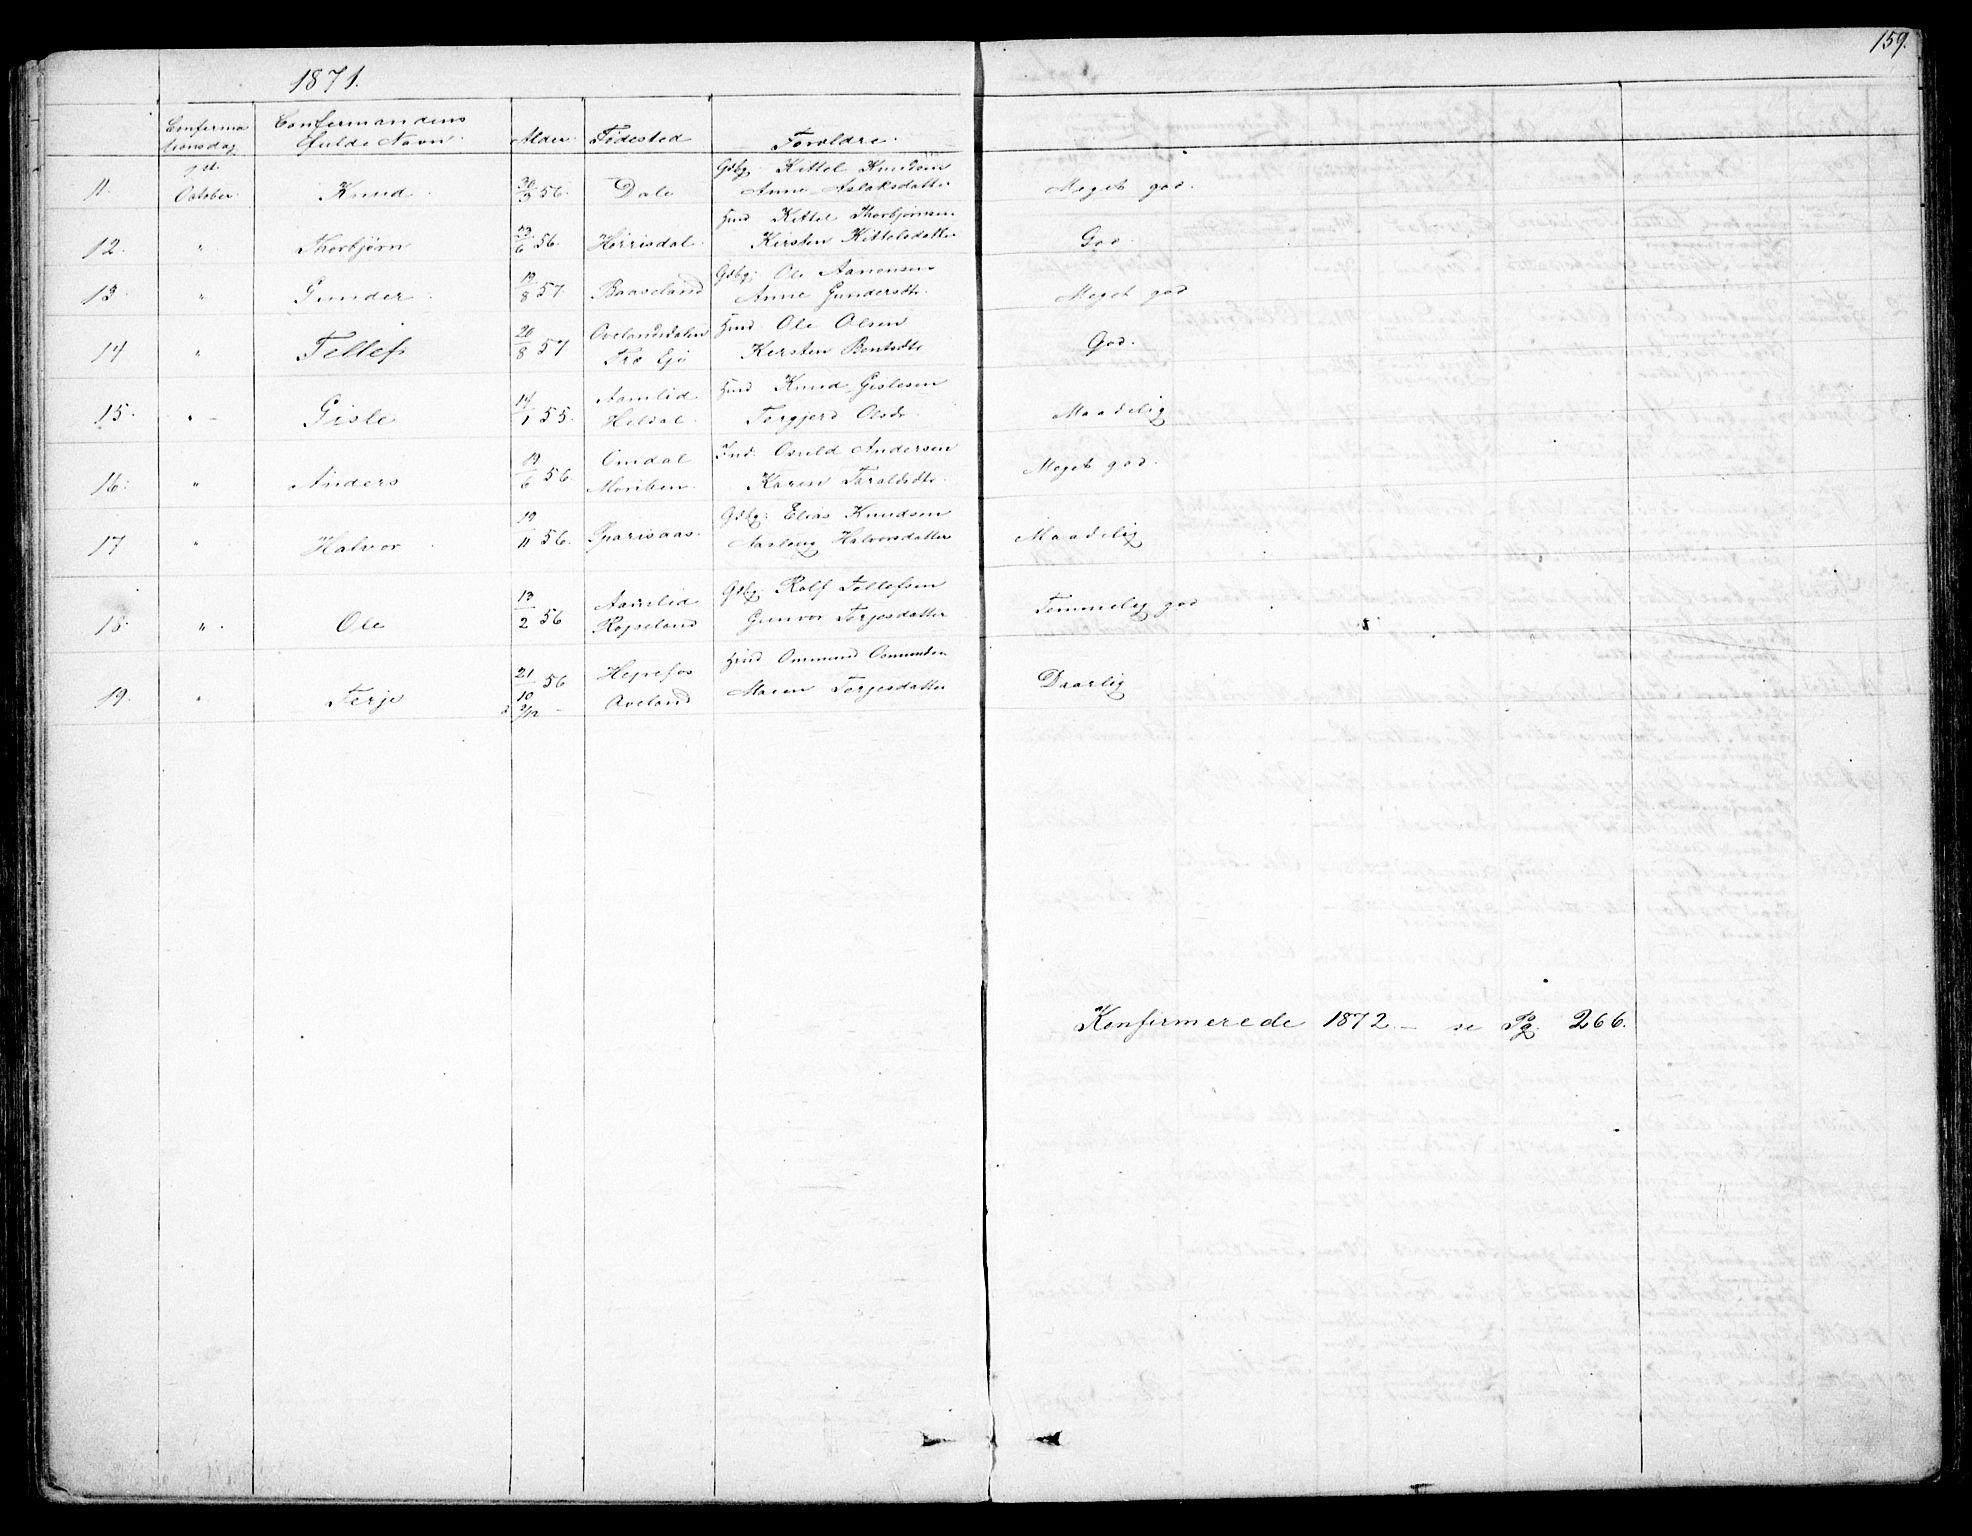 159.
1871.
Confirma Confirmandens
tionsdag fulde Navn Alder Fødested Forældre
11. October Knud 30/3 56. Dale Gdbg. Kittel Knudsen
Anne Aslaksdatter Meget god.
12. " Thorbjørn /6 56. Hørrisdal Hmd Kittel Thorbjørnsen
Kirsten Kittelsdatter God.
13 " Gunder 19/8 57. Baaseland Gdbg. Ole Aanonsen
Anne Gundersdtr. Meget god
14 " Tellef 20/8 57 Ovelandsdalen Hmd Ole Olsen
Kirsten Bentsdtr God.
15. " Gisle 14/1 55. Aamlid Hmd Knud Gislesen
Heldal. Torgjerd Olsdr. Maadelig
16. " Anders 19/6 56. Omdal Ind. Osuld Andersen
Moriben. Karen Taraldsdtr. Meget god.
17 " Halvor 19/11 56. Sparisaas. Gdbg. Elias Knudsen
Aaslaug Halvorsdatter Maadelig
18. " Ole 13/2 56 Aamlid Gdbg. Rolf Tellefsen
Røiseland Gunvor Terjesdatter Temmelig god
19. " Terje 21/10 56 Hepsefos Hmd Ommund Osmundsen
Aveland Maren Terjesdatter Daarlig
Konfirmerede 1872 – se Pg. 266.